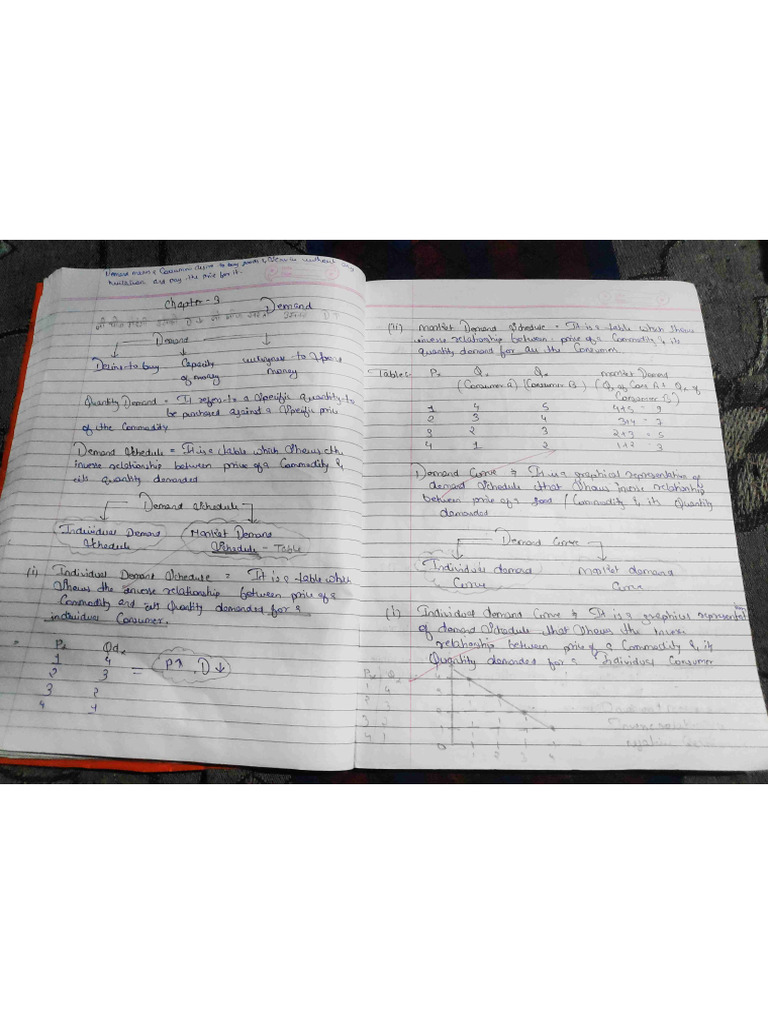 Demand means Consumer desire to buy goods & Service without any
hesitation and pay the price for it.
Chapter-3 Demand
Demand
Desire to buy Capacity of money willingness to spend money
Quantity Demand = It refers to a Specific quantity to
be purchased against a Specific price
of the Commodity
Demand Schedule = It is a table which Shows the
inverse relationship between price of a Commodity &
its quantity demanded
Demand Schedule
Individual Demand Schedule Market Demand Schedule - Table
(i) Individual Demand Schedule = It is a table which
Shows the inverse relationship between price of a
Commodity and its Quantity demanded for a
individual Consumer.
= Px Qdx
1 4
2 3 = P↑, D↓
3 2
4 1
(ii) Market Demand Schedule = It is a table which Shows
inverse relationship between price of a Commodity & its
quantity demand for all the Consumer
Table:- Px Qx Qx Market Demand
(Consumer A) (Consumer B) (Qx of Con A + Qx of
Consumer B)
1 4 5 4+5 = 9
2 3 4 3+4 = 7
3 2 3 2+3 = 5
4 1 2 1+2 = 3
Demand Curve It is a graphical representative of
demand Schedule that Shows inverse relationship
between price of a Good / Commodity & its Quantity
demanded
Demand Curve
Individual demand Curve Market demand Curve
(i) Individual demand Curve It is a graphical
of demand Schedule that Shows the
relationship between price of a Commodity & its
Quantity demanded for a Individual Consumer
Px Qx
1 4
2 3
3 2
4 1
0
1 2 3 4